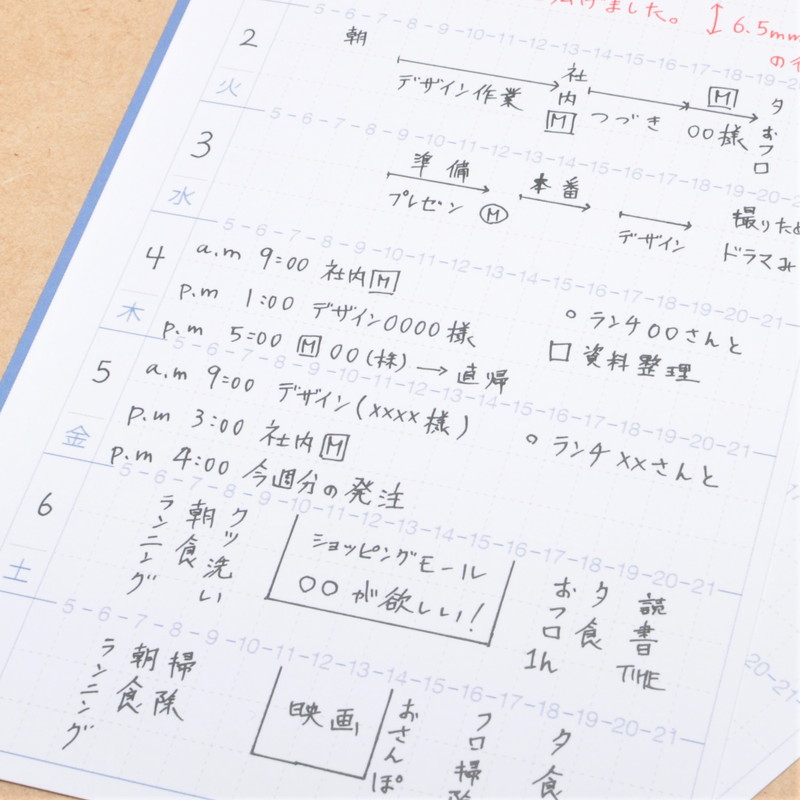 ました。 ↕ 6.5mm
5-6-7-8-9-10-11-12-13-14-15-16-17-18-19-20
2 火
朝
デザイン作業
社内M
つづき
M
〇〇様
夕
おフロ
5-6-7-8-9-10-11-12-13-14-15-16-17-18-19-20-21
3 水
準備
プレゼンM
本番
デザイン
撮りため
ドラマみ
5-6-7-8-9-10-11-12-13-14-15-16-17-18-19-20-21
4 木
a.m 9:00 社内M
p.m 1:00 デザイン〇〇〇〇様
p.m 5:00 M 〇〇(株)→直帰
○ ランチ〇〇さんと
□ 資料整理
5-6-7-8-9-10-11-12-13-14-15-16-17-18-19-20-21
5 金
a.m 9:00 デザイン(××××様)
p.m 3:00 社内M
p.m 4:00 今週分の発注
○ ランチ××さんと
5-6-7-8-9-10-11-12-13-14-15-16-17-18-19-20-21
6 土
ランニング
朝食
クツ洗い
ショッピングモール
〇〇が欲しい!
おフロ1h
夕食
読書TIME
5-6-7-8-9-10-11-12-13-14-15-16-17-18-19-20-21
ランニング
朝食
掃除
映画
おさんぽ
フロ掃除
夕食
20-21